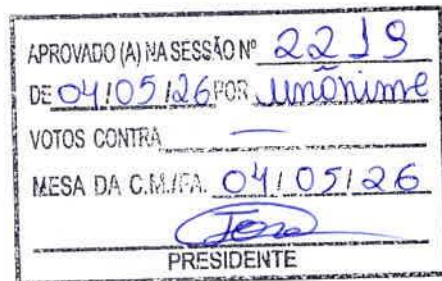 APROVADO (A) NA SESSÃO Nº 2219
DE 04/05/26 POR unônime
VOTOS CONTRA —
MESA DA C.M./FA. 04/05/26
PRESIDENTE